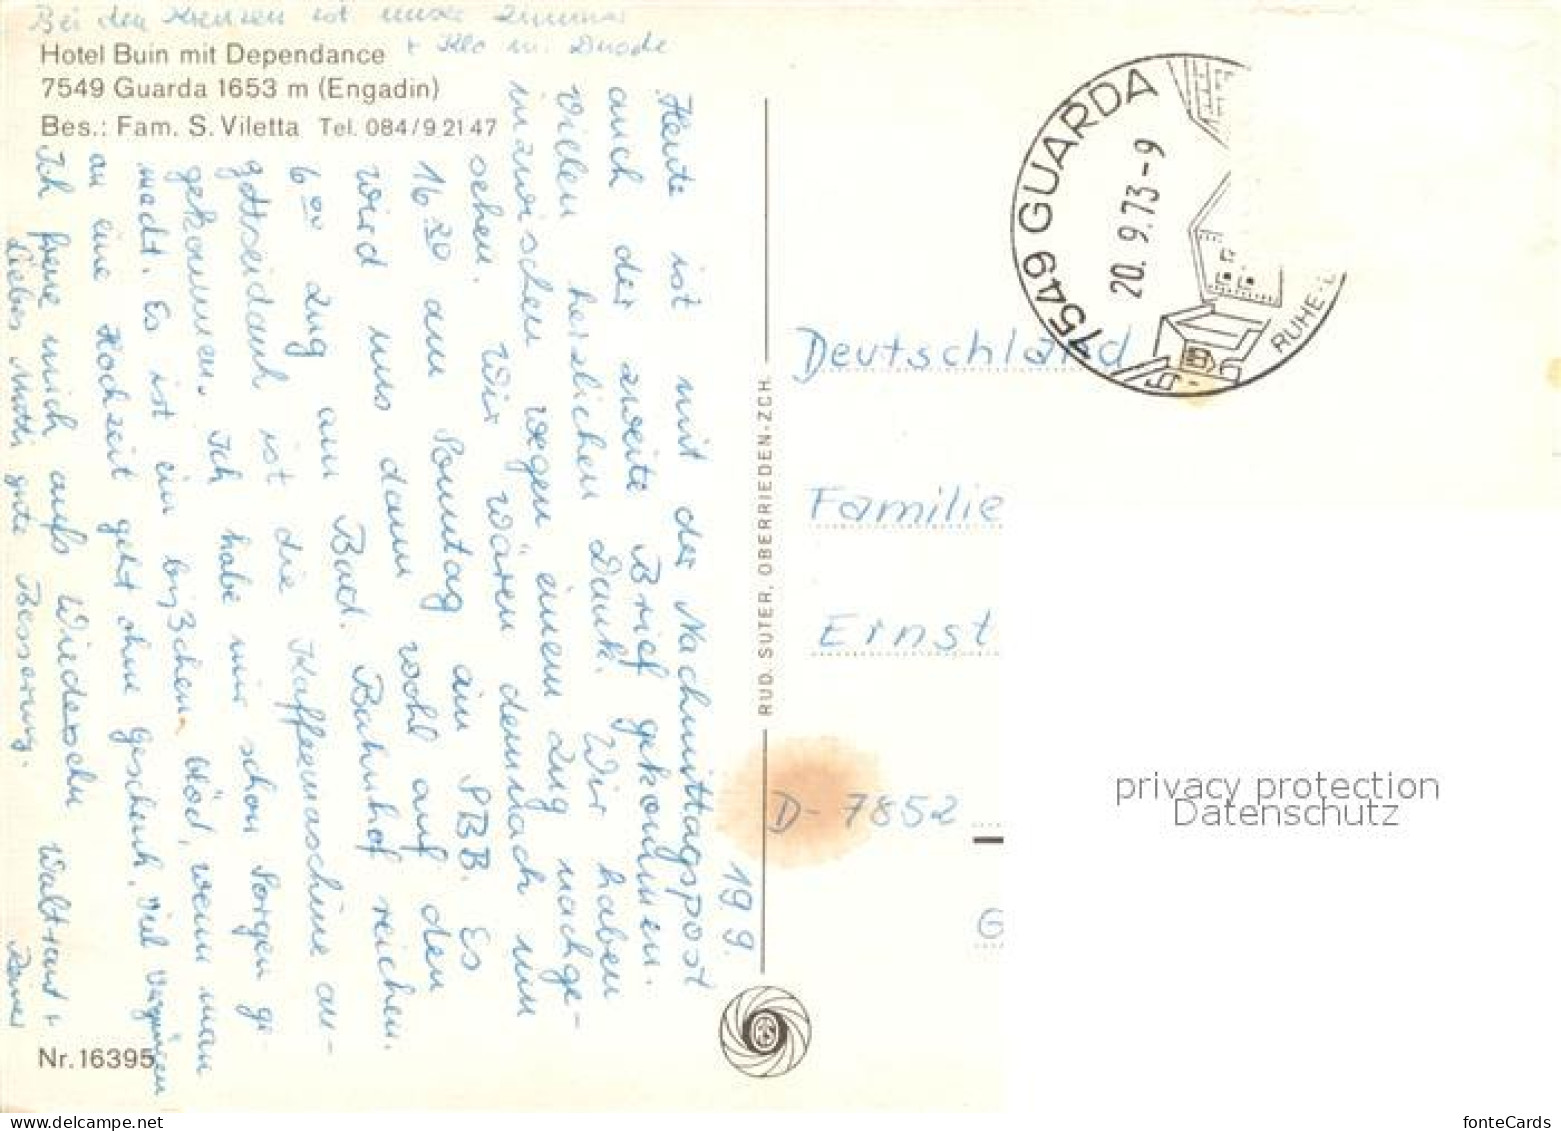 Bei den Kreuzen ist unser Zimmer
+ Klo m. Dusche
Hotel Buin mit Dependance
7549 Guarda 1653 m (Engadin)
Bes.: Fam. S. Viletta Tel. 084/9 21 47
19.9.
Heute ist mit der Nachmittagspost
auch der zweite Brief gekommen.
Vielen herzlichen Dank. Wir haben
inzwischen wegen einem Zug nachge-
sehen. Wir wären demnach um
16 20 am Sonntag am SBB. Es
wird uns dann wohl auf den
6 00 Zug am Bad. Bahnhof reichen.
Gottseidank ist die Kaffeemaschine an-
gekommen. Ich habe mir schon Sorgen ge-
macht. Es ist ein bißchen blöd, wenn man
an eine Hochzeit geht ohne Geschenk. Viel Vergnügen
Ich freue mich aufs Wiedersehn Waltraut +
Liebes Mutti gute Besserung. Rainer
Nr. 16395
RUD. SUTER, OBERRIEDEN-ZCH.
7549 GUARDA
20. 9.73-9
RUHE
Deutschland
Familie
Ernst
D-7852
G
privacy protection
Datenschutz
delcampe.net
fonteCards